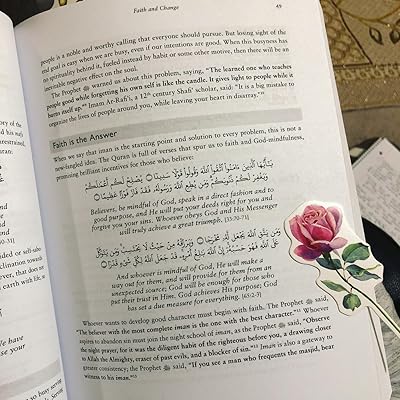 Faith and Change 49
people is a noble and worthy calling that everyone should pursue. But losing sight of the
end goal is easy when we are busy, even if our intentions are good. When this busyness has
no spirituality behind it, fueled instead by habit or some other motive, then there will be an
inevitable negative effect on the soul.
The Prophet ﷺ warned us about this problem, saying, "The learned one who teaches
people good while forgetting his own self is like the candle. It gives light to people while it
burns itself up." Imam Ar-Rafi'i, a 12th century Shafi' scholar, said: "It is a big mistake to
organize the lives of people around you, while leaving your heart in disarray."
Faith is the Answer
When we say that iman is the starting point and solution to every problem, this is not a
new-fangled idea. The Quran is full of verses that spur us to faith and God-mindfulness,
promising brilliant incentives for those who believe:
يَٰٓأَيُّهَا ٱلَّذِينَ ءَامَنُوا۟ ٱتَّقُوا۟ ٱللَّهَ وَقُولُوا۟ قَوْلًا سَدِيدًا ۝ يُصْلِحْ لَكُمْ أَعْمَٰلَكُمْ
وَيَغْفِرْ لَكُمْ ذُنُوبَكُمْ وَمَن يُطِعِ ٱللَّهَ وَرَسُولَهُۥ فَقَدْ فَازَ فَوْزًا عَظِيمًا ۝
Believers, be mindful of God, speak in a direct fashion and to
good purpose, and He will put your deeds right for you and
forgive you your sins. Whoever obeys God and His Messenger
will truly achieve a great triumph. [33:70-71]
وَمَن يَتَّقِ ٱللَّهَ يَجْعَل لَّهُۥ مَخْرَجًا ۝ وَيَرْزُقْهُ مِنْ حَيْثُ لَا يَحْتَسِبُ وَمَن يَتَوَكَّلْ
عَلَى ٱللَّهِ فَهُوَ حَسْبُهُۥٓ إِنَّ ٱللَّهَ بَٰلِغُ أَمْرِهِۦ قَدْ جَعَلَ ٱللَّهُ لِكُلِّ شَىْءٍ قَدْرًا ۝
And whoever is mindful of God, He will make a
way out for them, and will provide for them from an
unexpected source; God will be enough for those who
put their trust in Him. God achieves His purpose; God
has set a due measure for everything. [65:2-3]
Whoever wants to develop good character must begin with faith. The Prophet ﷺ said,
"The believer with the most complete iman is the one with the best character." Whoever
aspires to abandon sin must join the night school of iman, as the Prophet ﷺ said, "Observe
the night prayer, for it was the diligent habit of the righteous before you, a drawing closer
to Allah the Almighty, eraser of past evils, and a blocker of sin." Iman is also a gateway to
greater consistency; the Prophet ﷺ said, "If you see a man who frequents the masjid, bear
witness to his iman."